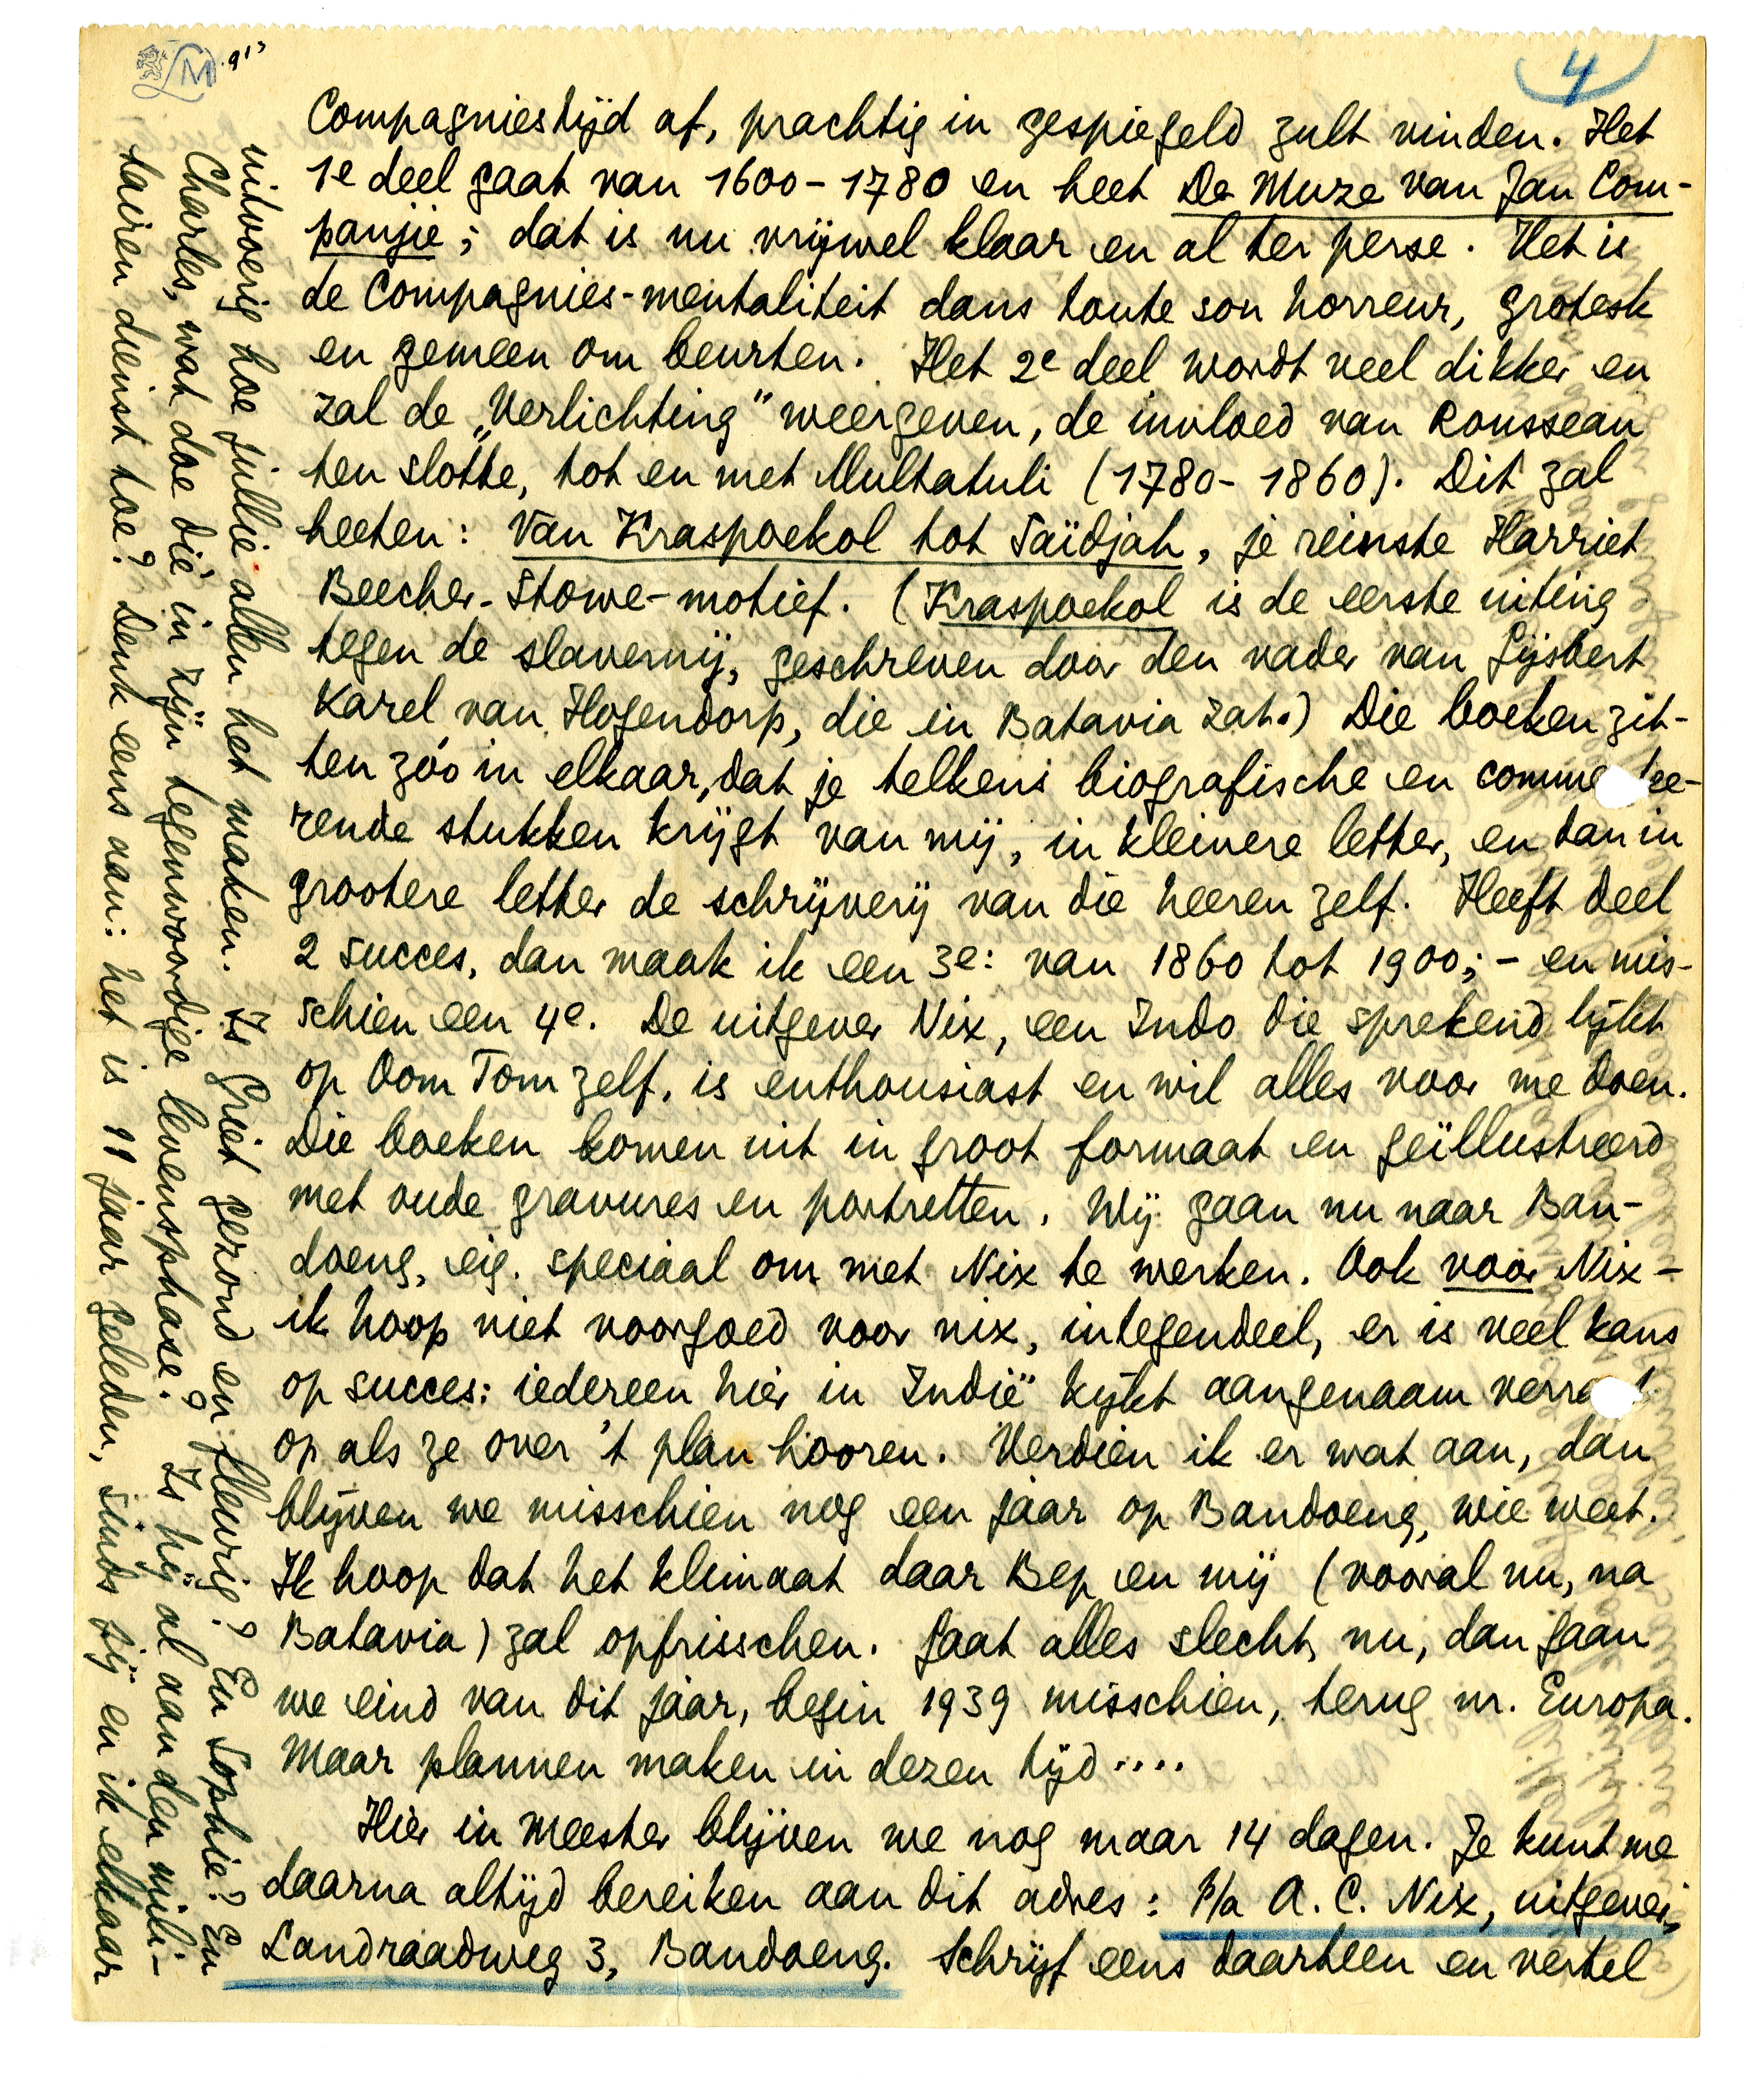 4
Compagniestijd af, prachtig in gespiegeld zult vinden. Het
1e deel gaat van 1600-1780 en heet De Muze van Jan Com-
panjie; dat is nu vrijwel klaar en al ter perse. Het is
de Compagnies-mentaliteit dans toute son horreur, grotesk
en gemeen om beurten. Het 2e deel wordt veel dikker en
zal de „Verlichting" weergeven, de invloed van Rousseau
ten slotte, tot en met Multatuli (1780-1860). Dit zal
heeten: Van Kraspoekol tot Saïdjah, je reinste Harriet
Beecher-Stowe-motief. (Kraspoekol is de eerste uiting
tegen de slavernij, geschreven door den vader van Gijsbert
Karel van Hogendorp, die in Batavia zat.) Die boeken zit-
ten zóó in elkaar, dat je telkens biografische en comme tee-
rende stukken krijgt van mij, in kleinere letter, en dan in
grootere letter de schrijverij van die heeren zelf. Heeft deel
2 succes, dan maak ik een 3e: van 1860 tot 1900; - en mis-
schien een 4e. De uitgever Nix, een Indo die sprekend lijkt
op Oom Tom zelf, is enthousiast en wil alles voor me doen.
Die boeken komen uit in groot formaat en geïllustreerd
met oude gravures en portretten. Wij gaan nu naar Ban-
doeng, eig. speciaal om met Nix te werken. Ook voor Nix -
ik hoop niet voorgoed voor nix, integendeel, er is veel kans
op succes: iedereen hier in Indië kijkt aangenaam verra t
op als ze over 't plan hooren. Verdien ik er wat aan, dan
blijven we misschien nog een jaar op Bandoeng, wie weet.
Ik hoop dat het klimaat daar Bep en mij (vooral nu, na
Batavia) zal opfrisschen. Gaat alles slecht, nu, dan gaan
we eind van dit jaar, begin 1939 misschien, terug nr. Europa.
Maar plannen maken in dezen tijd....
Hier in Meester blijven we nog maar 14 dagen. Je kunt me
daarna altijd bereiken aan dit adres: P/a A. C. Nix, uitgever,
Landraadweg 3, Bandoeng. Schrijf eens daarheen en vertel
uitvoerig hoe jullie allen het maken. Is Griet gezond en fleurig? En Sophie? En
Charles, wat doe die in zijn tegenwoordige levensphase? Is hij al aan den mili-
tairen dienst toe? Denk eens aan: het is 11 jaar geleden, sinds jij en ik elkaar
LM 913